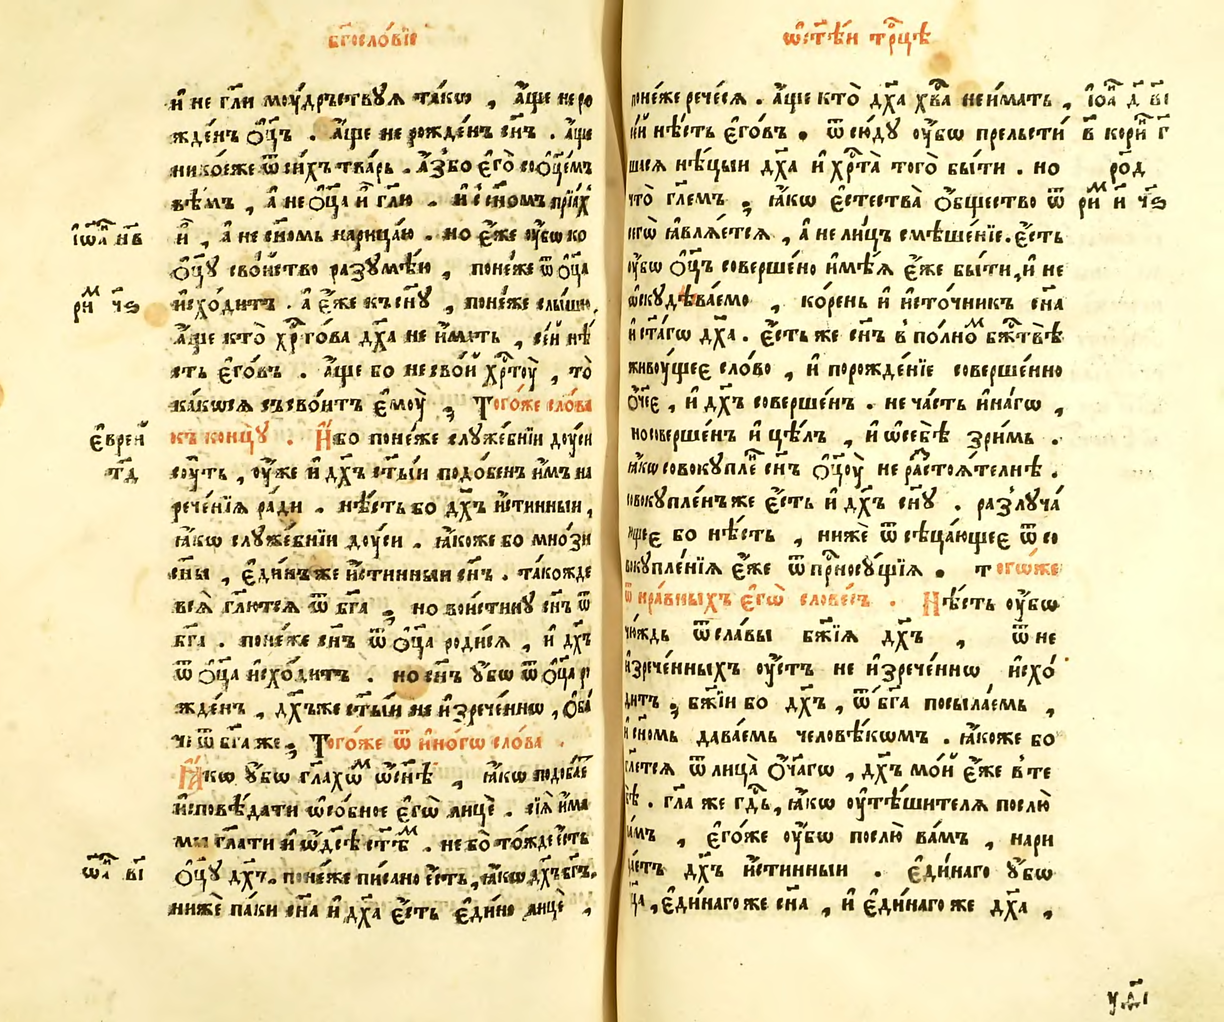 бг҃ословїе
и҆ не гл҃и моу́дръствуꙗ та́кѡ , а҆́ще не ро
жде́нъ ѻ҆ц҃ъ . а҆́ще не рожде́нъ сн҃ъ . а҆́ще
ни кое́же ѿ си́хъ тва́рь . а҆́з бо є҆го̀ со ѻ҆ц҃е́мъ
вѣ́мъ , а҆ не ѻ҆ц҃а и҆̀ гл҃ю . и҆ с сн҃омъ прїа́х
і҆ѡа҃ н҃в
и҆̀ , а҆ не сн҃омь нарица́ю . но є҆́же ᲂу҆́бѡ ко
ѻ҆ц҃у сво́иство разумѣ́ю , поне́же ѿ ѻ҆ц҃а
и҆схо́дитъ . а҆ є҆́же къ сн҃у , поне́же слы́шю
ри́м ч҃ѕ
а҆́ще кто̀ хрⷭ҇то́ва дх҃а не и҆́мать , се́и нѣ́
сть є҆го́въ . а҆́ще бо не сво́и хрⷭ҇тоу̀ , то̀
ка́кѡсѧ съсво́итъ є҆моу̀ ; Того́же сло́ва
къ концу̀ . И҆́бо поне́же служе́бнїи до́уси
є҆вре́и
гл҃д
соу́ть , ᲂу҆́же и҆ дх҃ъ ст҃ы́и подо́бенъ и҆́мъ на
рече́нїѧ ра́ди . нѣ́сть бо дх҃ъ и҆́стинныи ,
ꙗ҆́кѡ служе́бнїи до́уси . ꙗ҆́коже бо мно́зи
сн҃ы , є҆ди́нъ же и҆́стинныи сн҃ъ . та́кожде
всѧ̀ гл҃ютсѧ ѿ бг҃а , но вои́стину сн҃ъ ѿ
бг҃а . поне́же сн҃ъ ѿ ѻ҆ц҃а роди́сѧ , и҆ дх҃ъ
ѿ ѻ҆ц҃а и҆схо́дитъ . но сн҃ъ у҆́бѡ ѿ ѻ҆ц҃а р
жде́нъ , дх҃ъ же ст҃ы́и не и҆зрече́ннѡ , ѻ҆́ба
че ѿ бг҃а же ; Того́же ѿ и҆но́гѡ сло́ва .
Ꙗ҆́кѡ у҆́бѡ гл҃ахѡ́м ѡ҆ сн҃ѣ , ꙗ҆́кѡ подоба́е
и҆сповѣ́дати ѡ҆со́бное є҆гѡ̀ лицѐ . сїѧ̀ и҆́ма
мы гл҃ати и҆ ѡ҆ дс҃ѣ ст҃ѣ́м . не бо̀ то́жде є҆́сть
і҆ѡа҃ в҃і
ѻ҆ц҃у дх҃ъ . поне́же писано є҆́сть , ꙗ҆́кѡ дх҃ъ бг҃ъ .
нижѐ па́ки сн҃а и҆ дх҃а є҆́сть є҆ди́но лицѐ ,
ѡ҆ ст҃ѣ́и трⷪ҇цѣ
поне́же рече́сѧ . а҆́ще кто̀ дх҃а хв҃а не и́мать ,
і҆ѡа҃ д҃ в҃і
се́и нѣ́сть є҆го́въ . ѿ сю́ду ᲂу҆́бѡ прельсти́
в҃ кори́н г҃
шасѧ нѣ́цыи дх҃а и҆ хрⷭ҇та̀ того̀ бы́ти . но
что̀ гл҃емъ ; ꙗ҆́кѡ є҆стества̀ ѻ҆́бщество ѿ
ри́м и҃ ч҃ѕ
сегѡ̀ ꙗ҆влѧ́етсѧ , а҆ не ли́цъ смѣше́нїе . є҆́сть
ᲂу҆́бѡ ѻ҆ц҃ъ соверше́но и҆мѣ́ѧ є҆́же бы́ти , и҆ не
ѡ҆скудѣва́емо , ко́рень и҆ и҆сто́чникъ сн҃а
и҆ ст҃а́гѡ дх҃а . є҆́сть же сн҃ъ в по́лном бжⷭ҇твѣ̀
живоу́щеє сло́во , и҆ порожде́нїе соверше́нно
ѻ҆́ч҃еє , и҆ дх҃ъ соверше́нъ . не ча́сть и҆на́гѡ ,
но соверше́нъ и҆ цѣ́лъ , и҆ ѡ҆ себѣ̀ зри́мь .
ꙗ҆́кѡ совокупле́ сн҃ъ ѻ҆ц҃оу̀ не растоѧ́телнѣ .
совокупле́нъ же є҆́сть и҆ дх҃ъ сн҃у . разлуча́
ющеє бо нѣ́сть , нижѐ ѿсѣца́ющеє ѿ со
вокупле́нїѧ є҆́же ѿ присносу́щїѧ . тогѡ́же
ѿ нра́вныхъ є҆гѡ̀ слове́съ . Нѣ́сть ᲂу҆́бѡ
чю́ждь ѿ сла́вы бж҃їѧ дх҃ъ , ѿ не
и҆зрече́нныхъ ᲂу҆́стъ не и҆зрече́ннѡ и҆схо́
дитъ ; бж҃їи бо дх҃ъ , ѿ бг҃а посыла́емь ,
и҆ сн҃омь дава́емь человѣ́кѡмъ . ꙗ҆́коже бо
гл҃етсѧ ѿ лица̀ ѻ҆́ч҃агѡ , дх҃ъ мо́и є҆́же в те
бѣ̀ . гл҃а же гдⷭ҇ь , ꙗ҆́кѡ ᲂу҆тѣ́шителѧ послю̀
ва́мъ , є҆го́же ᲂу҆́бѡ послю̀ ва́мъ , нари
ца́етъ дх҃ъ и҆́стинныи . є҆ди́наго у҆́бѡ
ѻ҆ц҃а , є҆ди́наго же сн҃а , и҆ є҆ди́наго же дх҃а ,